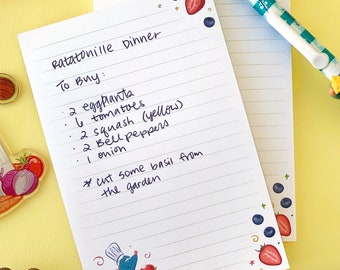 Ratatouille Dinner
To Buy:
· 2 eggplants
· 6 tomatoes
· 2 squash (yellow)
· 2 Bell Peppers
· 1 onion
* cut some basil from
the garden